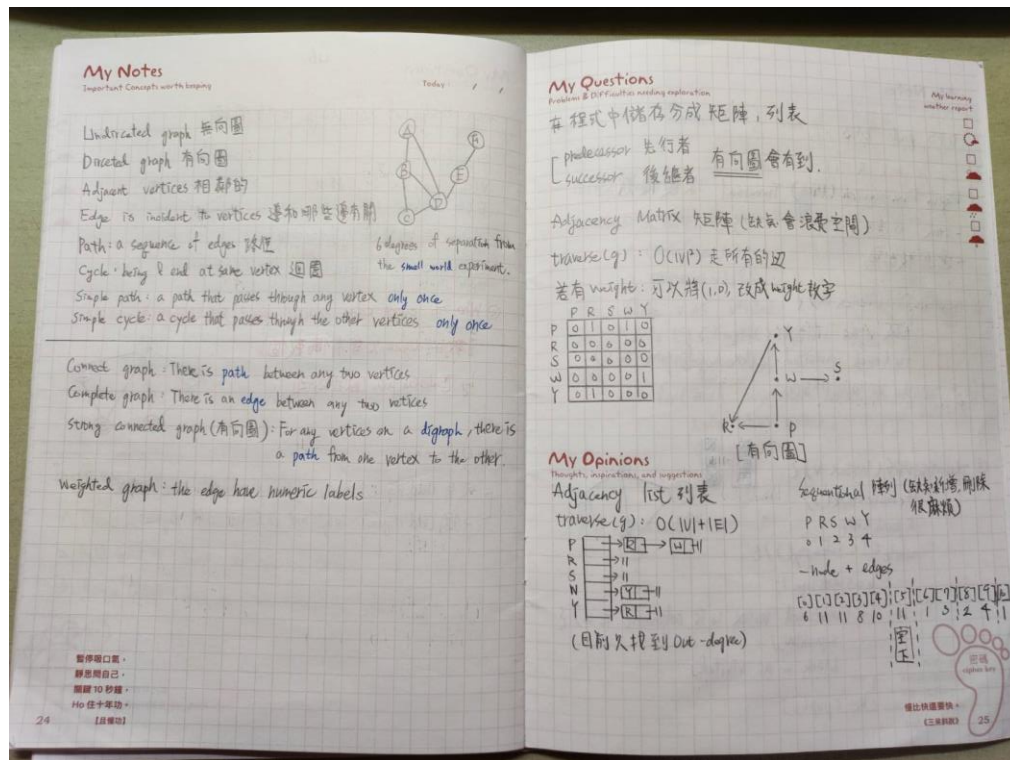 My Notes
Important Concepts worth keeping
Today : / /
Undirected graph 無向圖
Directed graph 有向圖
Adjacent vertices 相鄰的
Edge is incident to vertices 邊和哪些邊有關
Path : a sequence of edges 路徑
Cycle : being & end at same vertex 迴圈
6 degrees of separation from
the small world experiment.
Simple path : a path that passes through any vertex only once
Simple cycle : a cycle that passes through the other vertices only once
A
B
C
D
E
Connect graph : There is path between any two vertices
Complete graph : There is an edge between any two vetices
Strong connected graph (有向圖) : For any vertices on a digraph, there is
a path from one vertex to the other.
Weighted graph : the edge have numeric labels
暫停吸口氣，
靜思問自己，
關鍵10秒鐘，
Ho 任十年功。
24
【且慢功】
My Questions
Problems & Difficulties needing exploration
My learning
weather report
在程式中儲存分成矩陣，列表
predecessor 先行者
successor 後繼者
有向圖會有到.
Adjacency Matrix 矩陣 (缺點會浪費空間)
traverse(g) : O(|V|²) 走所有的边
若有weight : 可以將(1,0)改成weight數字
P R S W Y
P 0 1 0 1 0
R 0 0 0 0 0
S 0 0 0 0 0
W 0 0 0 0 1
Y 0 1 0 0 0
Y
W
S
R
P
[有向圖]
My Opinions
Thoughts, inspirations, and suggestions
Adjacency list 列表
traverse(g) : O(|V|+|E|)
P R W
R
S
N Y
Y R
(目前只找到Out-degree)
Sequentional 陣列 (缺點新增,刪除
很麻煩)
P R S W Y
0 1 2 3 4
-node + edges
[0] [1] [2] [3] [4] [5] [6] [7] [8] [9]
6 11 11 8 10 11 1 3 2 4 1
空下
密碼
cipher key
慢比快還要快。
25